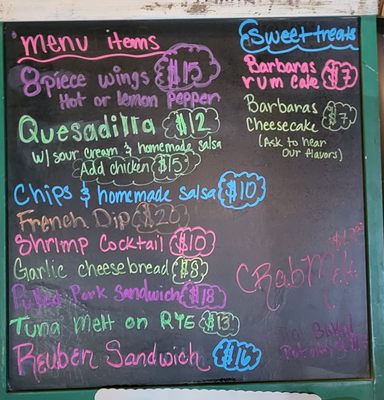 menu items
8 piece wings $15
Hot or lemon pepper
Quesadilla $12
w/ sour cream & homemade salsa
Add chicken $15
Chips & homemade salsa $10
French Dip $20
Shrimp Cocktail $10
Garlic cheesebread $8
Pulled Pork Sandwich $18
Tuna Melt on RYE $13
Reuben Sandwich $16
Sweet treats
Barbaras
rum cake $7
Barbaras $7
Cheesecake
(Ask to hear
our flavors)
CRab Melt
Baked